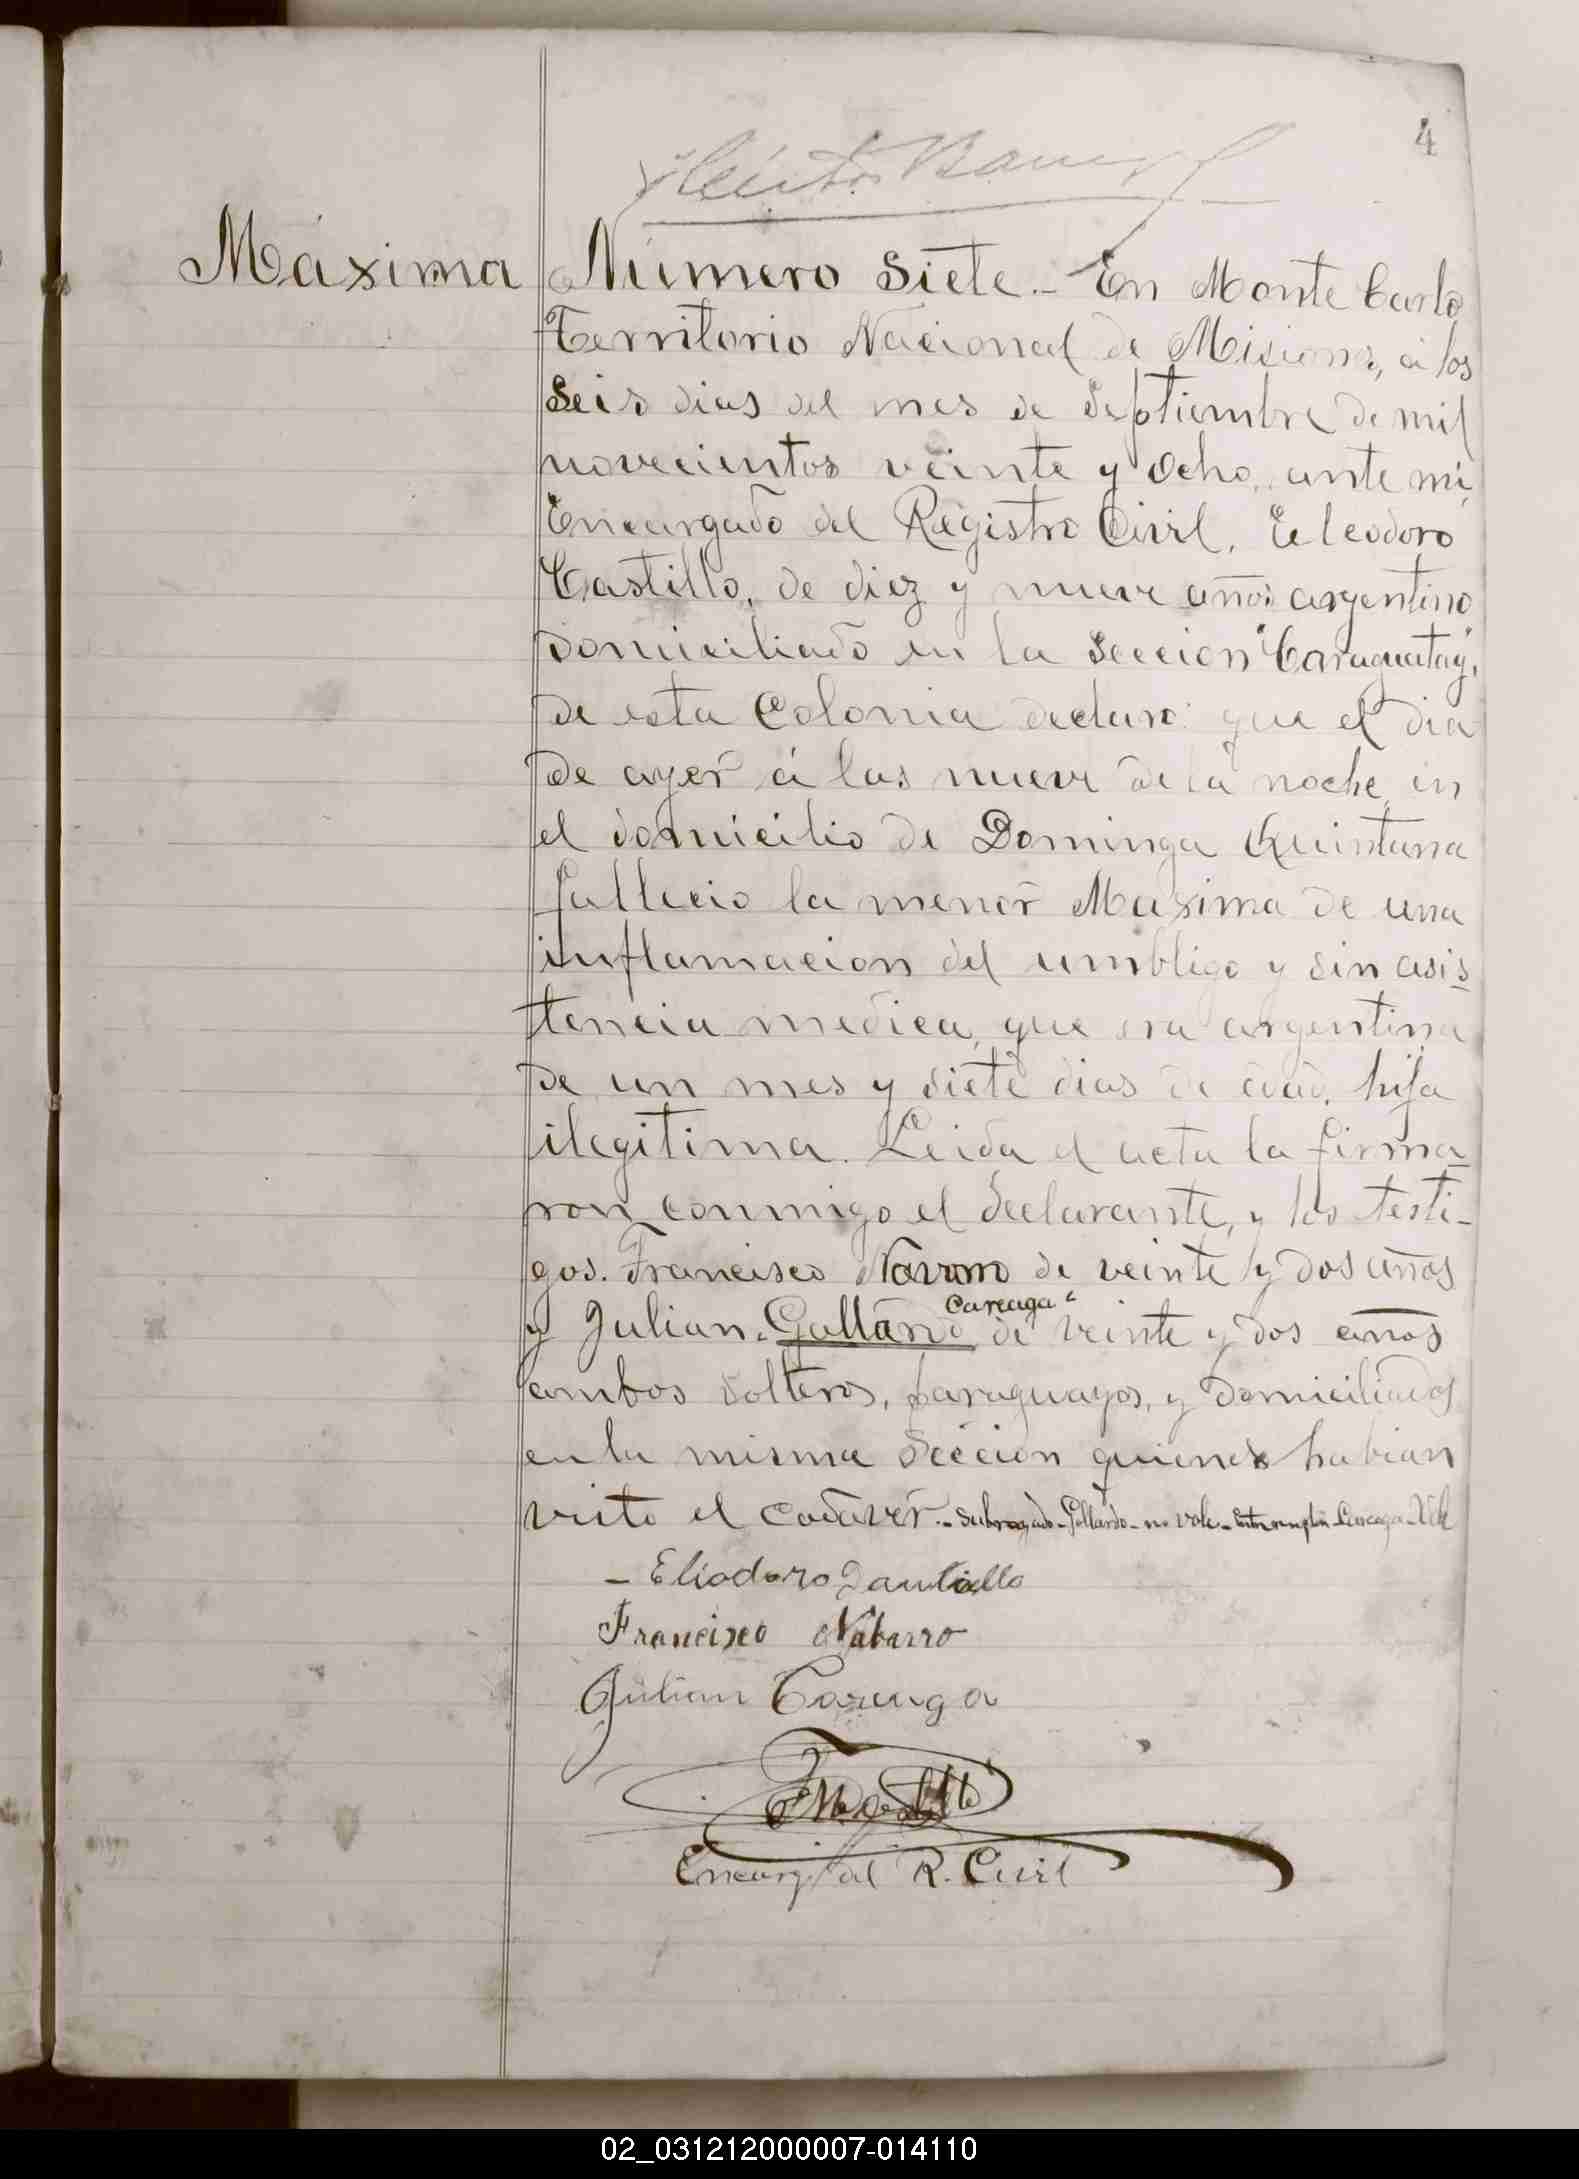 4
Máxima
Número Siete.- En Monte Carlo
Territorio Nacional de Misiones, á los
Seis dias del mes de Septiembre de mil
novecientos veinte y Ocho, ante mi
Encargado del Registro Civil, Eleodoro
Castillo, de diez y nueve años argentino
domiciliado en la Seccion "Caraguatay",
de esta Colonia declaro: que el dia
de ayer á las nueve de la noche, en
el domicilio de Dominga Quintana
fallecio la menor Maxima de una
inflamacion del umbligo y sin asis
tencia medica, que era argentina
de un mes y siete dias de edad, hija
ilegitima. Leida el acta la firma
ron conmigo el declarante, y los testi-
gos. Francisco Navarro de veinte y dos años
Careaga
y Julian Gallardo de veinte y dos años
ambos solteros, paraguayos, y domiciliados
en la misma Seccion quienes habian
visto el cadaver.- Subrayado - Gallardo - no vale - Careaga - Vale
- Eliodoro
Francisco Nabarro
Julian Careaga
Encarg. del R. Civil
02_031212000007-014110